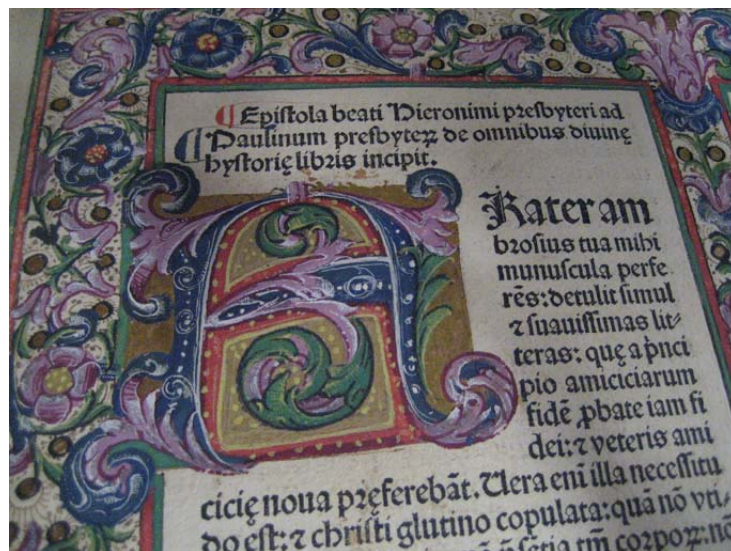 ¶ Epiſtola beati Hieronimi preſbyteri ad
¶ Paulinum preſbyteꝝ de omnibus diuinę
hyſtorię libris incipit.
Rater am
broſius tua mihi
munuſcula perfe
rēs: detulit ſimul
⁊ ſuauiſſimas lit⸗
teras: quę a pͥnci
pio amiciciarum
fidē ꝓbate iam fi
dei: ⁊ veteris ami
cicię noua pręferebāt. Uera enī illa neceſſitu
do eſt: ⁊ chriſti glutino copulata: quā nō vti⸗
tm̄ corpoꝝ: nō